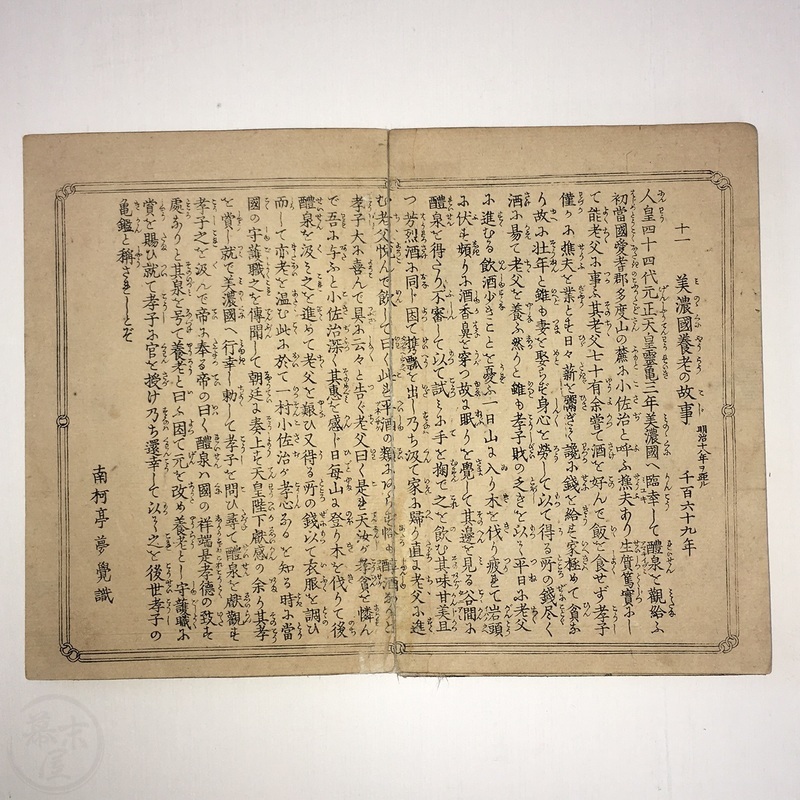 十一 美濃國養老の故事 明治十八年ヨ距ル 千百六十九年
人皇四十四代元正天皇靈亀三年美濃國へ臨幸して醴泉を觀給ふ
初當國愛耆郡多度山の麓に小佐治と呼ふ樵夫あり生質篤實にし
て能老父に事ふ其老父七十有余嘗て酒を好んで飯を食せず孝子
僅りに樵夫を業とせち日々薪を鬻ぎ纔に錢を給も家極めて貧な
り故に壮年と雖も妻を娶らせ身心を勞して以て得る所の錢尽く
酒に易て老父を養ふ然りと雖も孝子財の乏きを以る平日に老父
に進むる飲酒少きことを憂ふ一日山に入り木を伐り疲まて岩頭
に伏も頻りに酒香鼻を穿つ故に眠りを覺して其邊を見る谷間に
醴泉を得さり不審して以て試に手を掬で之を飲む其味甘美且
つ芳烈酒に同じ因て其瓢を出し乃ち汲て家に歸り直に老父に進
む老父悦んで飲して曰く此も平酒の類に
孝子大に喜んで具に云々と告ぐ老父曰く是も天汝が孝貧を憐ん
で吾に与ふと小佐治深く其惠を感じ日毎山に登り木を伐りて後
醴泉を汲みと之を進めて老父を慰ひ又得る所の錢以て衣服を調ひ
而して亦老を温む此に於て一村小佐治が孝心あるを知る時に當
國の守護職之を傳聞して朝廷に奏上も天皇陛下厭感の余り其孝
を賞し就て美濃國へ行幸し勅して孝子を問ひ尋て醴泉を献觀も
孝子之を汲んで帝に奉る帝の曰く醴泉ハ國の祥端是孝德の致も
處ありと其泉を号て養老と曰ふ因て元を改め養老と守護職に
賞を賜ひ就て孝子に官を授け乃ち還幸して以る之を後世孝子の
亀鑑と稱さましとぞ
南柯亭夢覺識
幕末屋